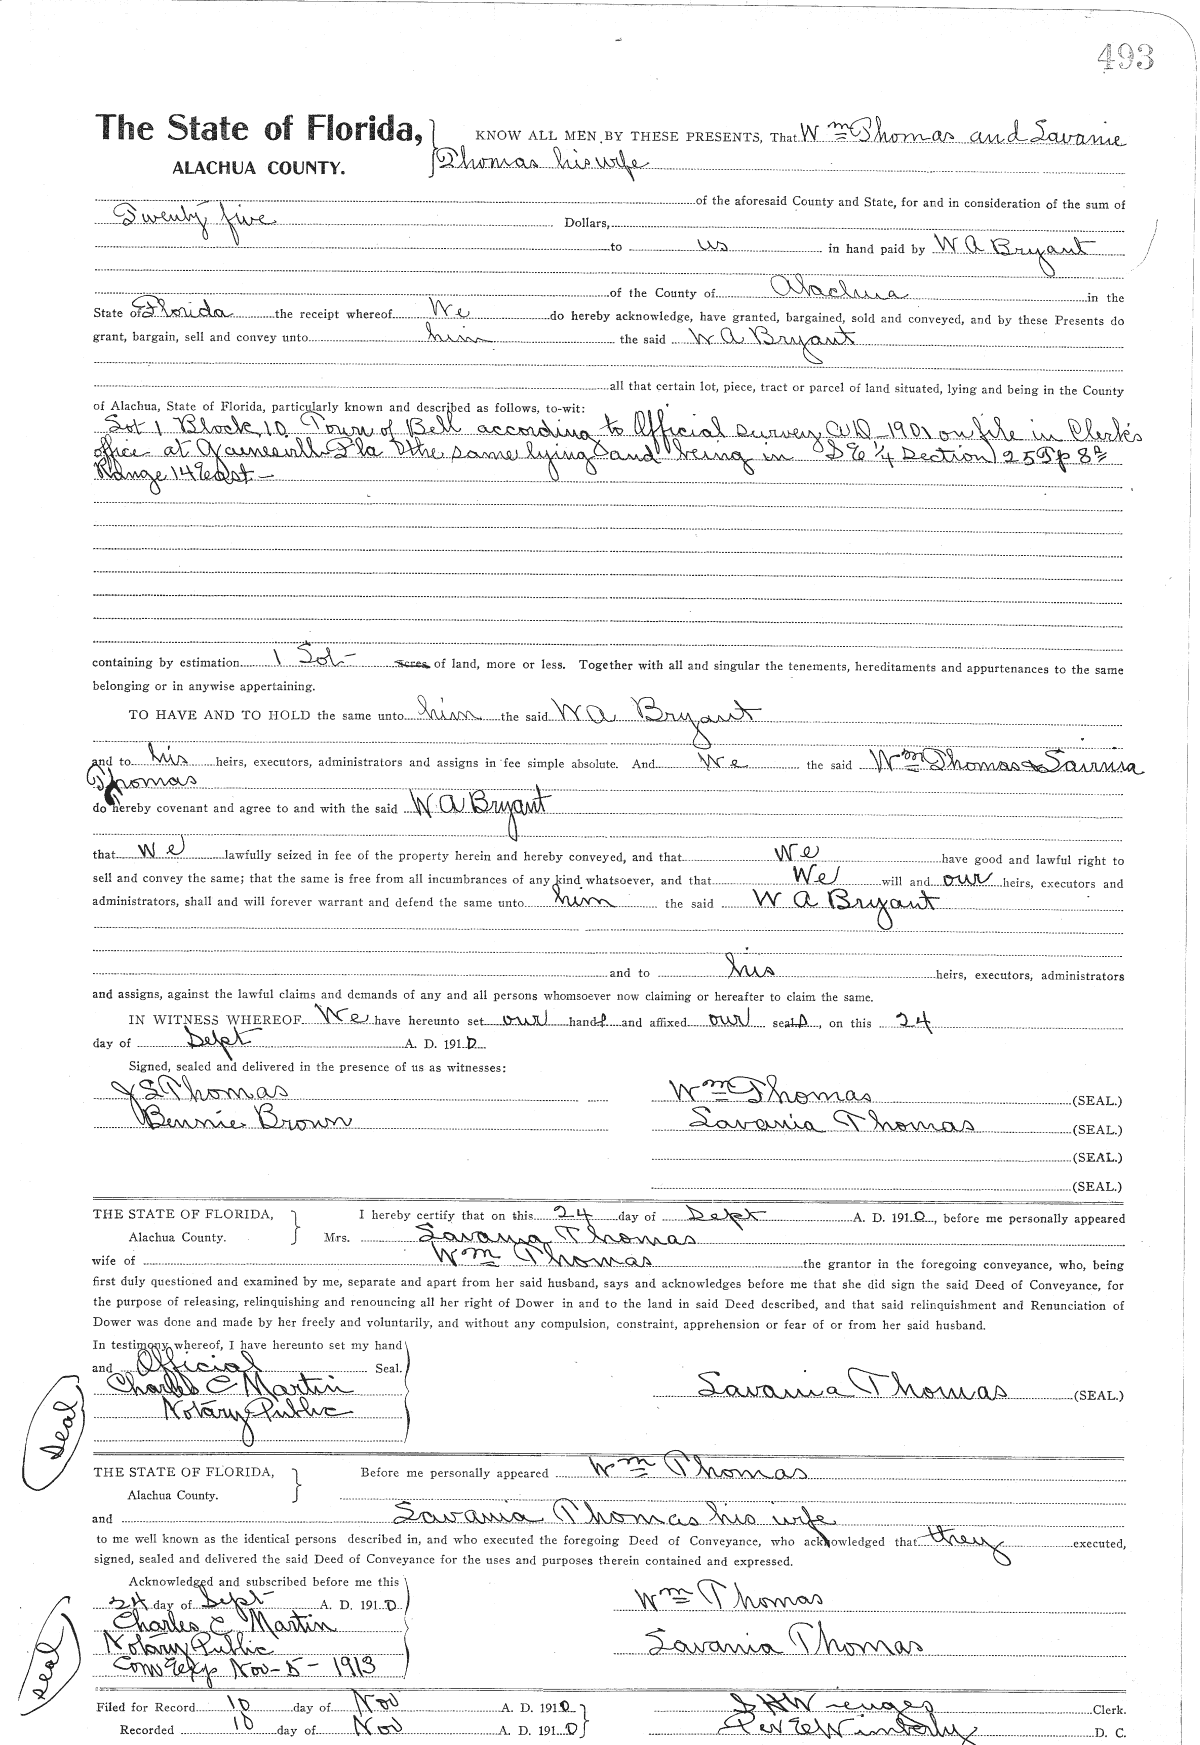 493
The State of Florida, KNOW ALL MEN BY THESE PRESENTS, That Wm Thomas and Savanie
ALACHUA COUNTY. Thomas his wife
of the aforesaid County and State, for and in consideration of the sum of
Twenty five Dollars,
to us in hand paid by W A Bryant
of the County of Alachua in the
State of Florida the receipt whereof We do hereby acknowledge, have granted, bargained, sold and conveyed, and by these Presents do
grant, bargain, sell and convey unto him the said W A Bryant
all that certain lot, piece, tract or parcel of land situated, lying and being in the County
of Alachua, State of Florida, particularly known and described as follows, to-wit:
Lot 1 Block 10 Town of Bell according to Official survey A.D. 1901 on file in Clerk's
office at Gainesville Fla the same lying and being in S E 1/4 Section 25 Tp 8
Range 14 East —
containing by estimation 1 Lot acres of land, more or less. Together with all and singular the tenements, hereditaments and appurtenances to the same
belonging or in anywise appertaining.
TO HAVE AND TO HOLD the same unto him the said W A Bryant
and to his heirs, executors, administrators and assigns in fee simple absolute. And We the said Wm Thomas &
Thomas
do hereby covenant and agree to and with the said W A Bryant
that we lawfully seized in fee of the property herein and hereby conveyed, and that We have good and lawful right to
sell and convey the same; that the same is free from all incumbrances of any kind whatsoever, and that We will and our heirs, executors and
administrators, shall and will forever warrant and defend the same unto him the said W A Bryant
and to his heirs, executors, administrators
and assigns, against the lawful claims and demands of any and all persons whomsoever now claiming or hereafter to claim the same.
IN WITNESS WHEREOF We have hereunto set our hands and affixed our seals, on this 24
day of Sept A. D. 1910
Signed, sealed and delivered in the presence of us as witnesses:
J S Thomas Wm Thomas (SEAL.)
Bennie Brown Savania Thomas (SEAL.)
(SEAL.)
(SEAL.)
THE STATE OF FLORIDA, I hereby certify that on this 24 day of Sept A. D. 1910, before me personally appeared
Alachua County. Mrs. Savania Thomas
wife of Wm Thomas the grantor in the foregoing conveyance, who, being
first duly questioned and examined by me, separate and apart from her said husband, says and acknowledges before me that she did sign the said Deed of Conveyance, for
the purpose of releasing, relinquishing and renouncing all her right of Dower in and to the land in said Deed described, and that said relinquishment and Renunciation of
Dower was done and made by her freely and voluntarily, and without any compulsion, constraint, apprehension or fear of or from her said husband.
In testimony whereof, I have hereunto set my hand
and Official Seal.
Charles C Martin Savania Thomas (SEAL.)
Notary Public
Seal
THE STATE OF FLORIDA, Before me personally appeared Wm Thomas
Alachua County.
and Savania Thomas his wife
to me well known as the identical persons described in, and who executed the foregoing Deed of Conveyance, who acknowledged that they executed,
signed, sealed and delivered the said Deed of Conveyance for the uses and purposes therein contained and expressed.
Acknowledged and subscribed before me this
24 day of Sept A. D. 1910 Wm Thomas
Charles C Martin
Notary Public Savania Thomas
Com Exp Nov-5-1913
Seal
Filed for Record 10 day of Nov A. D. 1910 S H Wienges Clerk.
Recorded 10 day of Nov A. D. 1910 Per E Wimberly D. C.